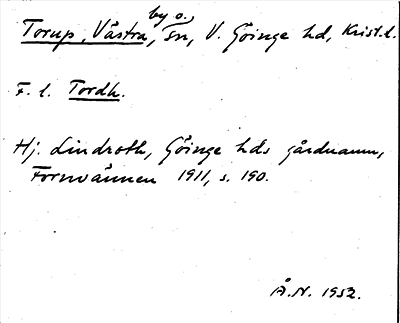 Torup, Västra, by o. sn, V. Göinge hd, Krist.l.
F. l. Tordh.
Hj. Lindroth, Göinge hds gårdnamn,
Fornvännen 1911, s. 190.
Å.N. 1952.